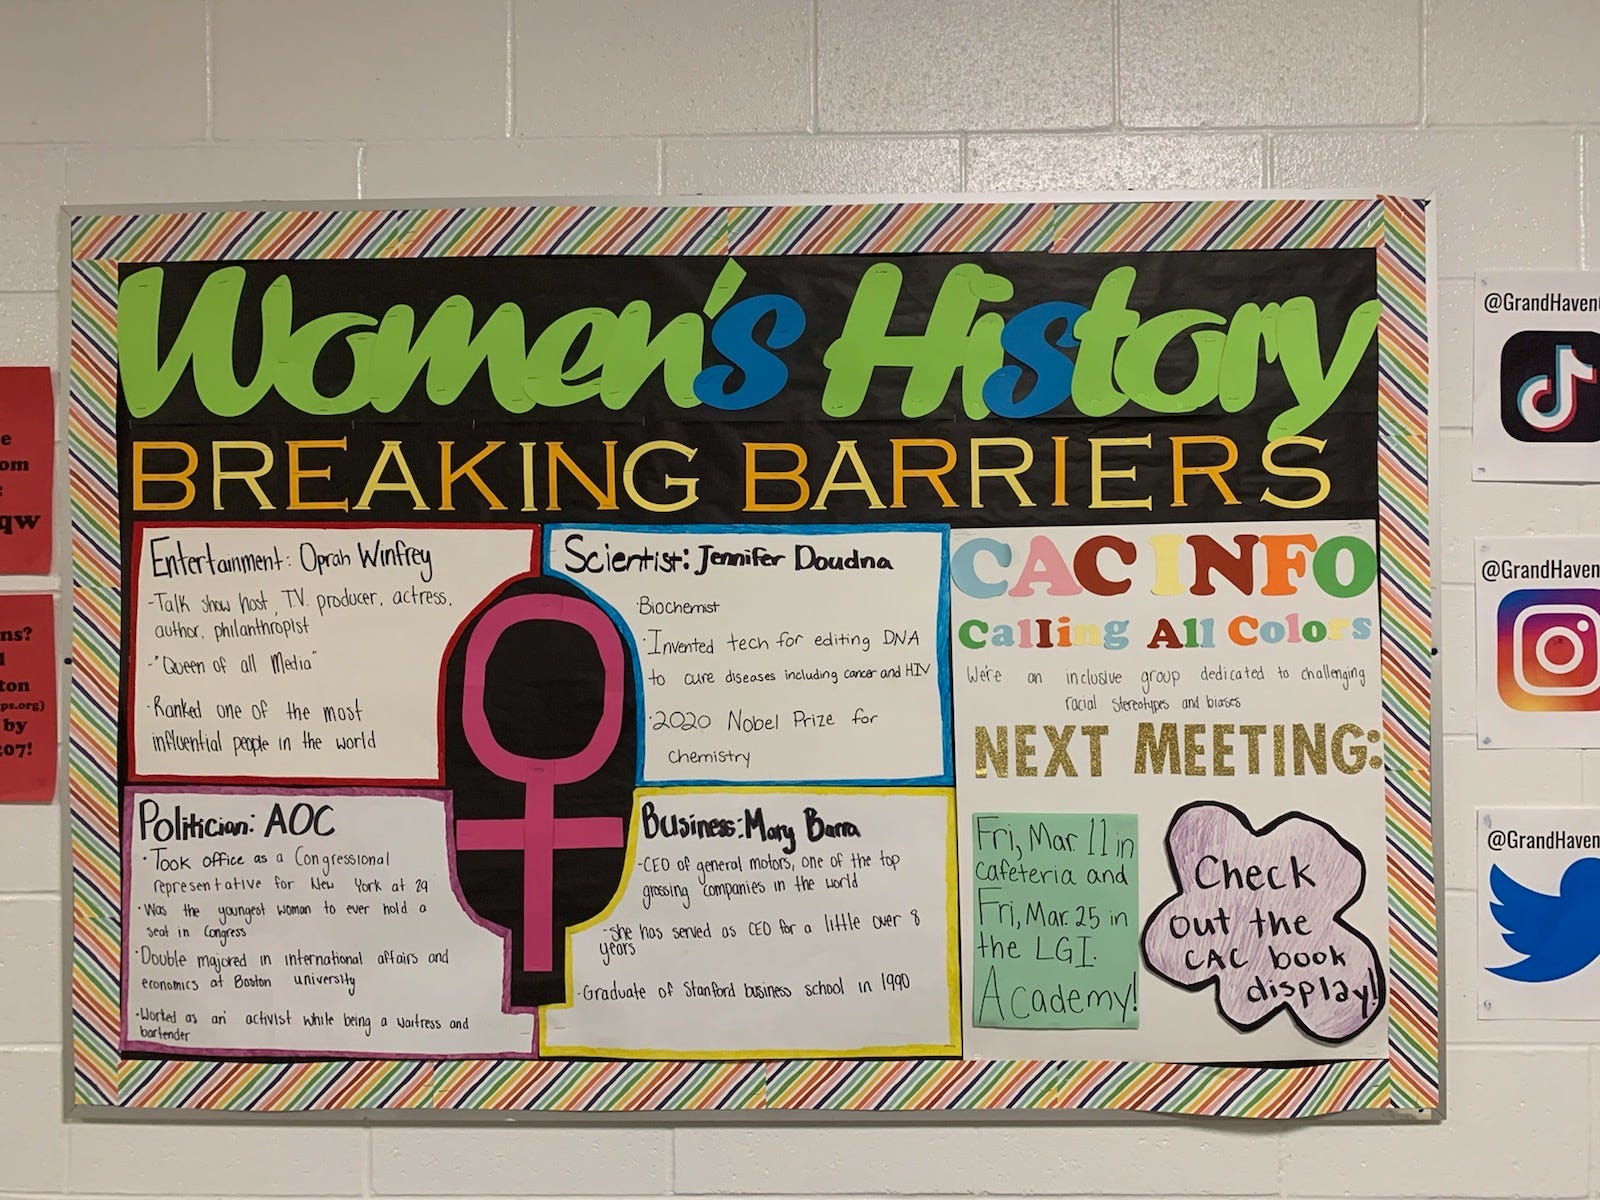 Women's History
BREAKING BARRIERS
Entertainment: Oprah Winfrey
-Talk show host, T.V. producer, actress,
author, philanthropist
-"Queen of all Media"
·Ranked one of the most
influential people in the world
Scientist: Jennifer Doudna
·Biochemist
·Invented tech for editing DNA
to cure diseases including cancer and HIV
·2020 Nobel Prize for
Chemistry
Politician: AOC
·Took office as a Congressional
representative for New York at 29
·Was the youngest woman to ever hold a
seat in Congress
·Double majored in international affairs and
economics at Boston university
·Worked as an activist while being a waitress and
bartender
Business: Mary Barra
-CEO of general motors, one of the top
grossing companies in the world
-she has served as CEO for a little over 8
years
-Graduate of Stanford business school in 1990
CAC INFO
Calling All Colors
We're an inclusive group dedicated to challenging
racial stereotypes and biases
NEXT MEETING:
Fri, Mar. 11 in
cafeteria and
Fri, Mar. 25 in
the LGI.
Academy!
Check
out the
CAC book
display!
@GrandHaven
@GrandHaven
@GrandHaven
e
om
:
qw
ns?
ton
ps.org)
by
207!